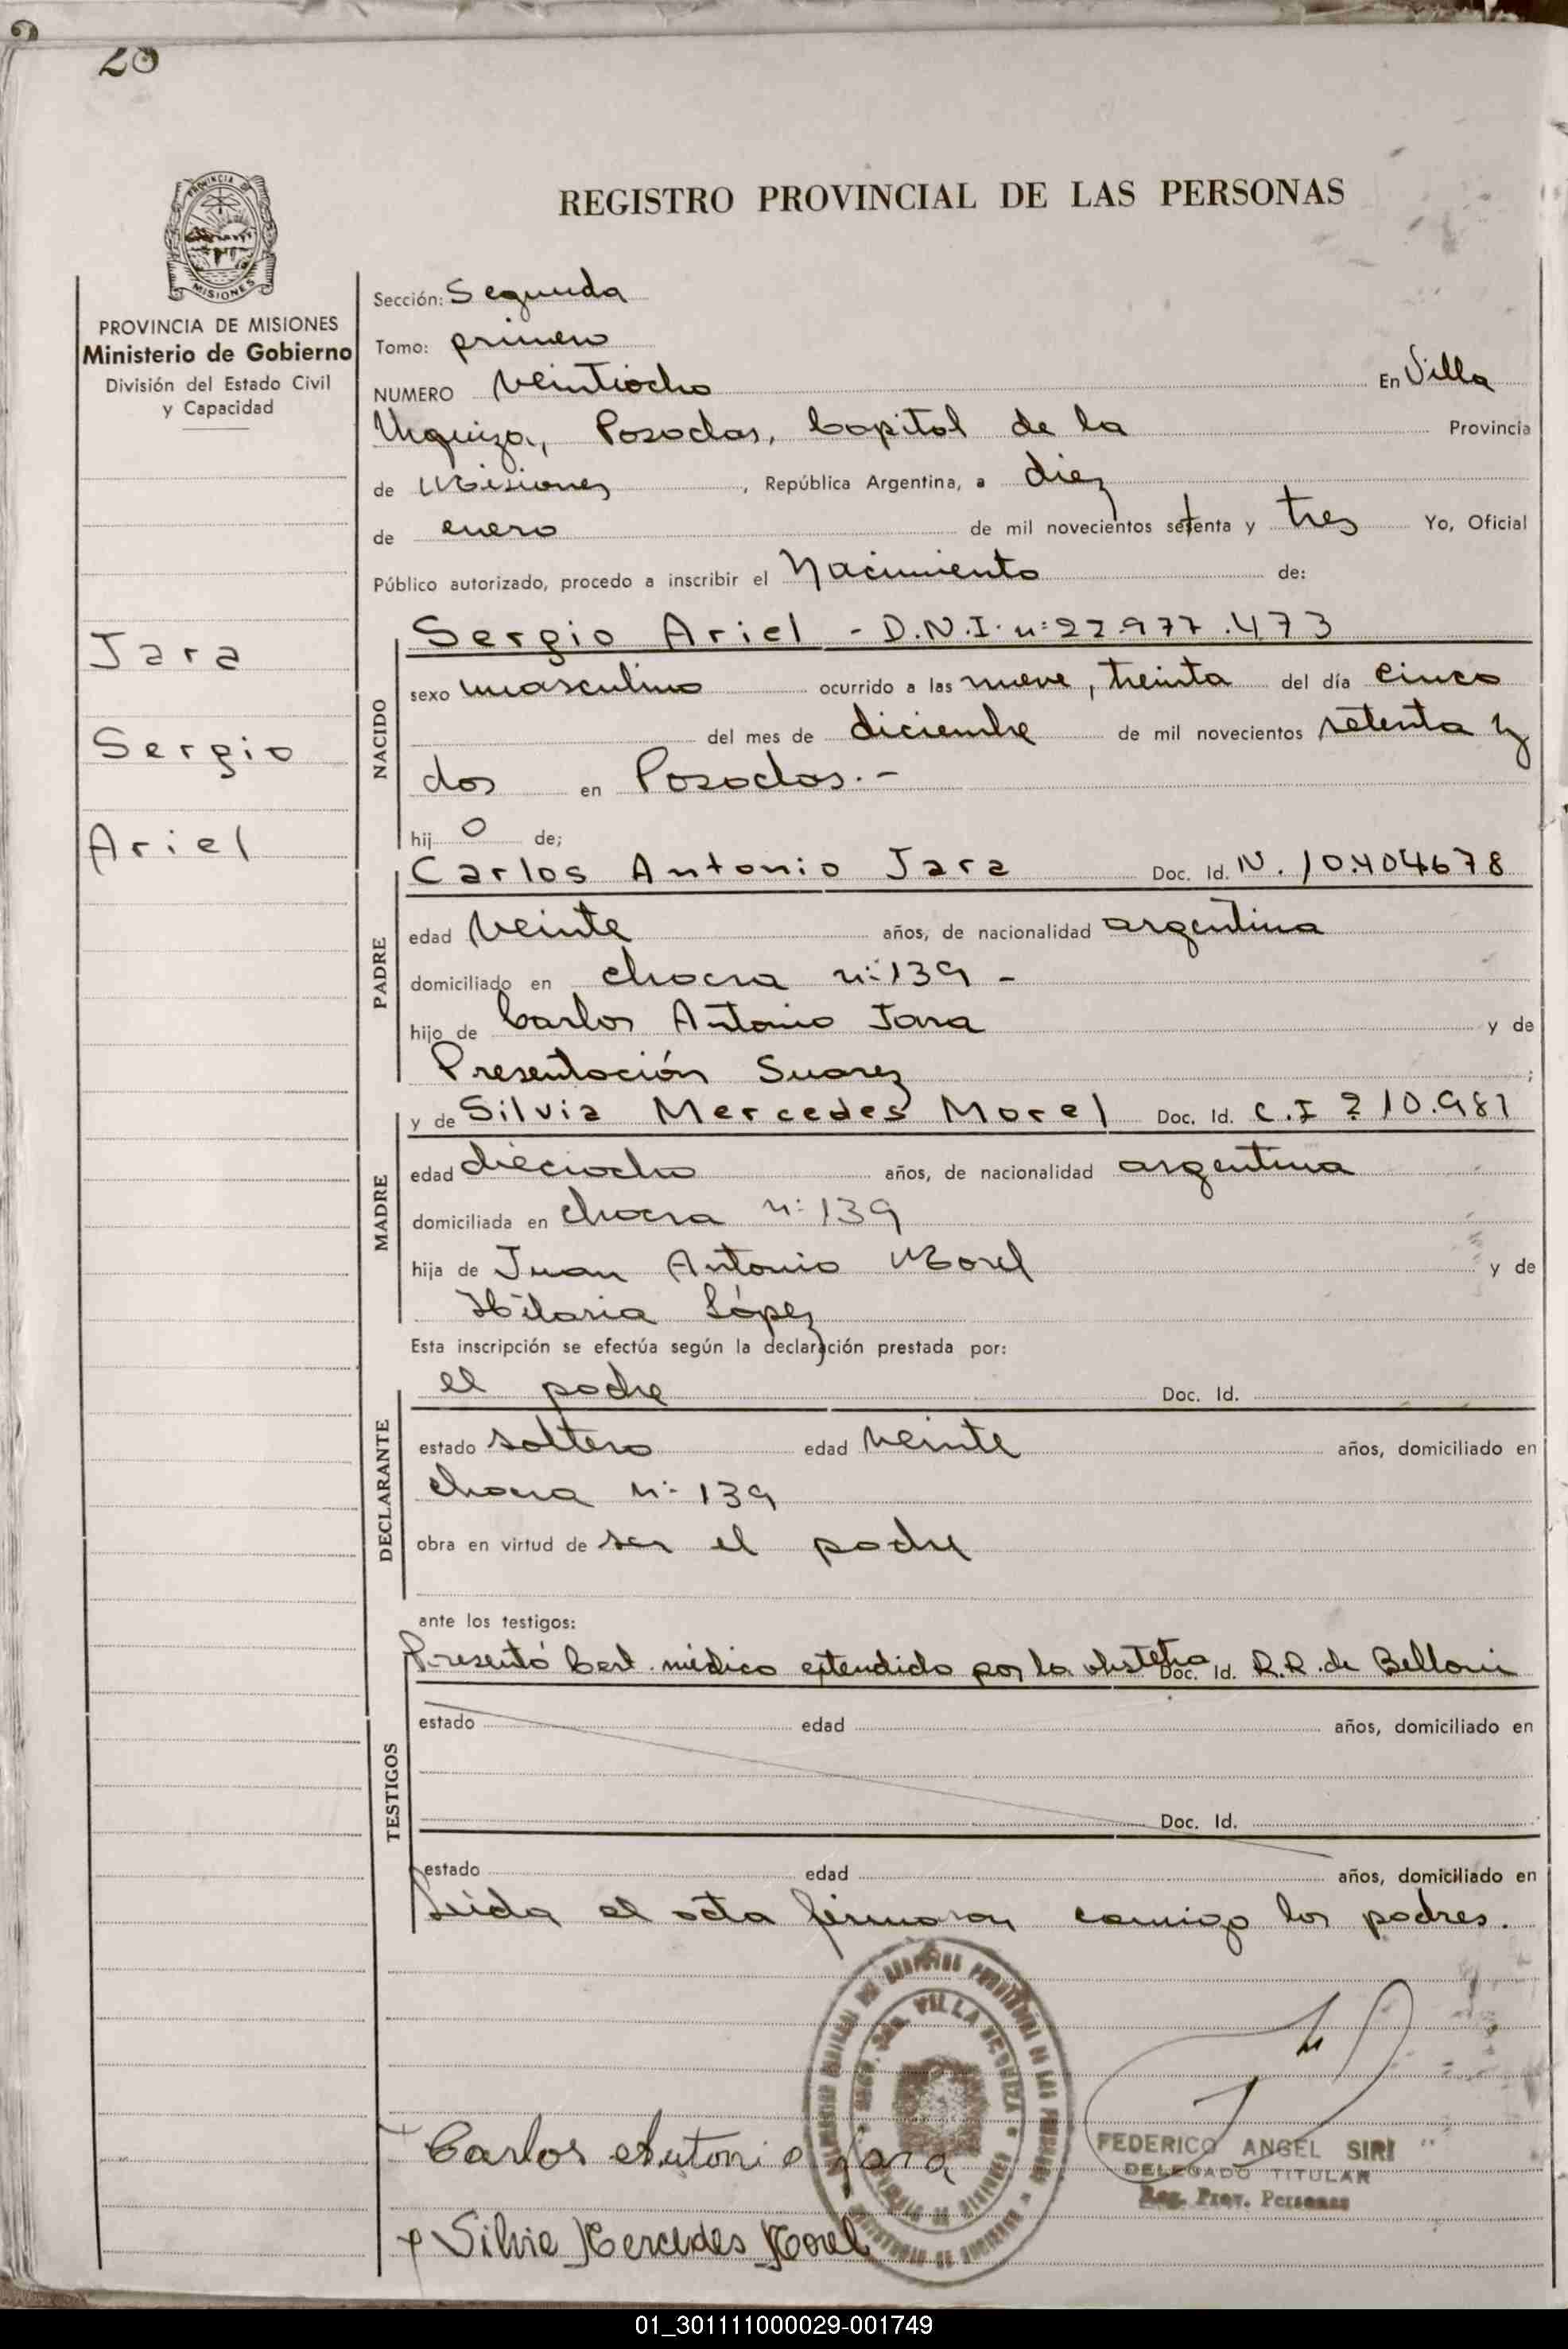 28
REGISTRO PROVINCIAL DE LAS PERSONAS
PROVINCIA DE
MISIONES
PROVINCIA DE MISIONES
Ministerio de Gobierno
División del Estado Civil
y Capacidad
Jara
Sergio
Ariel
Sección: Segunda
Tomo: primero
NUMERO veintiocho En Villa
Urquiza, Posadas, Capital de la Provincia
de Misiones, República Argentina, a diez
de enero de mil novecientos setenta y tres Yo, Oficial
Público autorizado, procedo a inscribir el Nacimiento de:
NACIDO
Sergio Ariel - D.N.I. n: 22.977.473
sexo masculino ocurrido a las nueve, treinta del día cinco
del mes de diciembre de mil novecientos setenta y
dos en Posadas.-
hij o de;
PADRE
Carlos Antonio Jara Doc. Id. N. 10.404678
edad veinte años, de nacionalidad argentina
domiciliado en chacra n: 139 -
hijo de Carlos Antonio Jara y de
Presentación Suarez ;
MADRE
y de Silvia Mercedes Morel Doc. Id. C.I 210.981
edad dieciocho años, de nacionalidad argentina
domiciliada en chacra n: 139
hija de Juan Antonio Morel y de
Hilaria López
Esta inscripción se efectúa según la declaración prestada por:
DECLARANTE
el padre Doc. Id.
estado soltero edad veinte años, domiciliado en
chacra n: 139
obra en virtud de ser el padre
ante los testigos:
TESTIGOS
Presentó Cert. médico extendido por la obstetra Doc. Id. R.R. de Belloni
estado edad años, domiciliado en
Doc. Id.
estado edad años, domiciliado en
Leida el acta firmaron conmigo los padres.
VILLA URQUIZA
Carlos Antonio Jara
Silvia Mercedes Morel
FEDERICO ANGEL SIRI
DELEGADO TITULAR
Reg. Prov. Personas
01_301111000029-001749